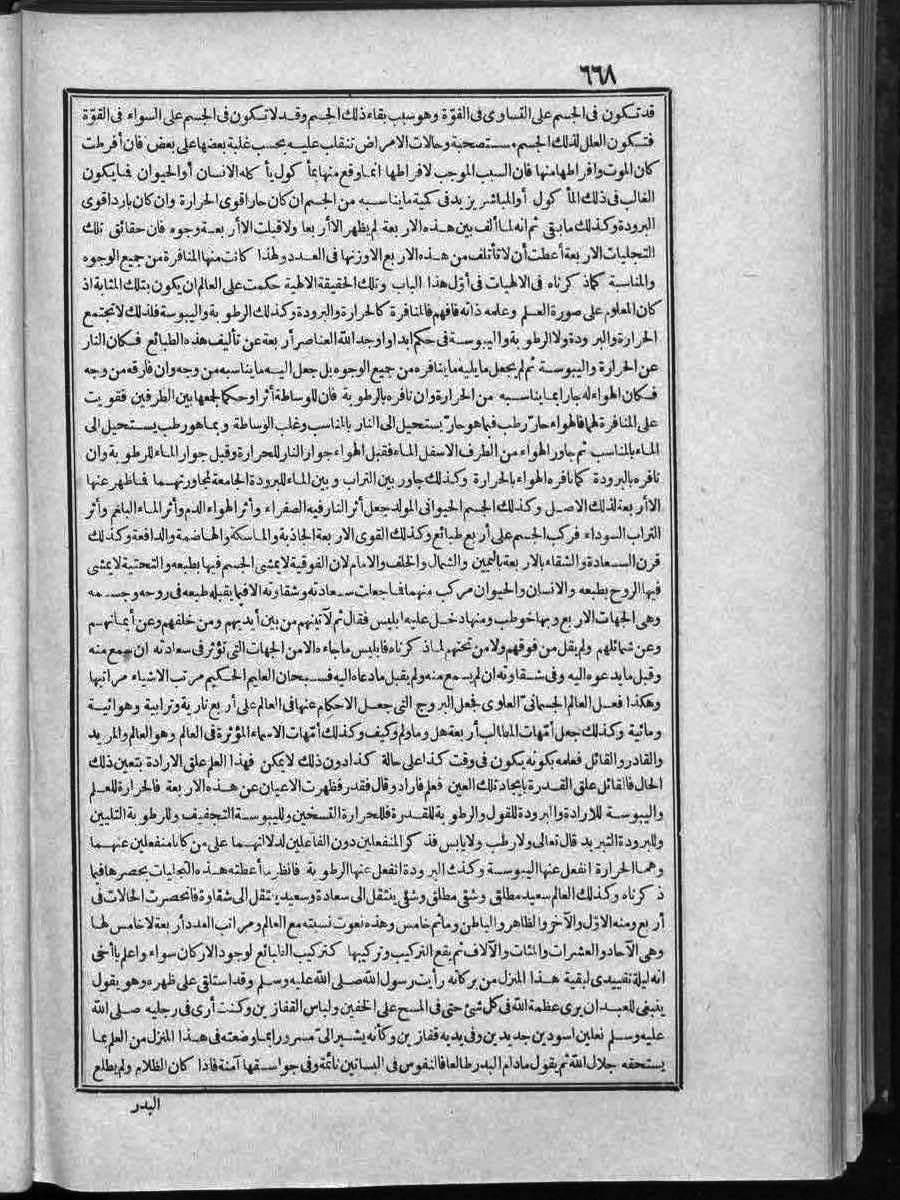 ٦٦٨
قد تكون فى الجسم على التساوى فى القوّة وهو سبب بقاء ذلك الجسم وقد لا تكون فى الجسم على السواء فى القوّة
فتكون العلل لذلك الجسم مستصحبة وحالات الامراض تنقلب عليه بحسب غلبة بعضها على بعض فان أفرطت
كان الموت وافراطها منها فان السبب الموجب لافراطها انما وقع منها بمأ كول يأ كله الانسان أو الحيوان فما يكون
الغالب فى ذلك المأ كول أو المباشر يزيد فى كمية ما يناسبه من الجسم ان كان حارا قوى الحرارة وان كان باردا قوى
البرودة وكذلك ما بقى ثم انه لما ألف بين هذه الاربعة لم يظهر الاأربعا ولا قبلت الاأربعة وجوه فان حقائق تلك
التجليات الاربعة أعطت أن لا تأتلف من هذه الاربع الا وزنها فى العدد ولهذا كانت منها المنافرة من جميع الوجوه
والمناسبة كما ذكرناه فى الالهيات فى أوّل هذا الباب وتلك الحقيقة الالهية حكمت على العالم ان يكون بتلك المثابة اذ
كان المعلوم على صورة العلم وعلمه ذاته فافهم فالمنافرة كالحرارة والبرودة وكذلك الرطوبة واليبوسة فلذلك لا تجتمع
الحرارة والبرودة ولا الرطوبة واليبوسة فى حكم ابدا وأوجد الله العناصر أربعة عن تأليف هذه الطبائع فكان النار
عن الحرارة واليبوسة ثم لم يجعل ما يليه ما ينافره من جميع الوجوه بل جعل اليه ما يناسبه من وجه وان فارقه من وجه
فكان الهواء له جارا بما يناسبه من الحرارة وان نافره بالرطوبة فان للوساطة أثرا وحكما لجمعها بين الطرفين فقويت
على المنافرة لهما فالهواء حارّ رطب فبما هو حارّ يستحيل الى النار بالمناسب وغلب الوساطة وبما هو رطب يستحيل الى
الماء بالمناسب ثم جاور الهواء من الطرف الاسفل الماء فقبل الهواء جوار النار للحرارة وقبل جوار الماء للرطوبة وان
نافره بالبرودة كما نافره الهواء بالحرارة وكذلك جاور بين التراب وبين الماء للبرودة الجامعة لمجاورتهما فما ظهر عنها
الاأربعة لذلك الاصل وكذلك الجسم الحيوانى المولد جعل أثر النار فيه الصفراء وأثر الهواء الدم وأثر الماء البلغم وأثر
التراب السوداء فركب الجسم على أربع طبائع وكذلك القوى الاربعة الجاذبة والماسكة والهاضمة والدافعة وكذلك
قرن السعادة والشقاء بالاربعة باليمين والشمال والخلف والامام لان الفوقية لا يمشى الجسم فيها بطبعه والتحتية لا يمشى
فيها الروح بطبعه والانسان والحيوان مركب منهما فما جعلت سعادته وشقاوته الا فيما يقبله طبعه فى روحه وجسمه
وهى الجهات الاربع وبها خوطب ومنها دخل عليه ابليس فقال ثم لآتينهم من بين أيديهم ومن خلفهم وعن أيمانهم
وعن شمائلهم ولم يقل من فوقهم ولا من تحتهم لما ذكرناه فابليس ما جاءه الا من الجهات التى تؤثر فى سعادته ان سمع منه
وقبل ما يدعوه اليه وفى شقاوته ان لم يسمع منه ولم يقبل ما دعاه اليه فسبحان العليم الحكيم مرتب الاشياء مراتبها
وهكذا فعل العالم الجسمانىّ العلوى فجعل البروج التى جعل الاحكام عنها فى العالم على أربع نارية وترابية وهوائية
ومائية وكذلك جعل أمّهات المطالب أربعة هل وما ولم وكيف وكذلك أمّهات الاسماء المؤثرة فى العالم وهو العالم والمريد
والقادر والقائل فعلمه بكونه يكون فى وقت كذا على حالة كذا دون ذلك لا يمكن فهذا العلم علق الارادة بتعين ذلك
الحال فالقائل علق القدرة بايجاد تلك العين فعلم فاراد وقال فقدر فظهرت الاعيان عن هذه الاربعة فالحرارة للعلم
واليبوسة للارادة والبرودة للقول والرطوبة للقدرة فللحرارة التسخين ولليبوسة التجفيف وللرطوبة التليين
وللبرودة التبريد قال تعالى ولا رطب ولا يابس فذكر المنفعلين دون الفاعلين لدلالتهما على من كانا منفعلين عنهما
وهما الحرارة انفعل عنها اليبوسة وكذلك البرودة انفعل عنها الرطوبة فانظر ما أعطته هذه التجليات بحصرها فيما
ذكرناه وكذلك العالم سعيد مطلق وشقى مطلق وشقى ينتقل الى سعادة وسعيد ينتقل الى شقاوة فانحصرت الحالات فى
أربع ومنه الاوّل والآخر والظاهر والباطن وما ثم خامس وهذه نعوت نسبته مع العالم ومراتب العدد أربعة لا خامس لها
وهى الآحاد والعشرات والمئات والآلاف ثم يقع التركيب وتركيبها كتركيب الطبائع لوجود الاركان سواء واعلم يا أخى
انه ليلة تقييدى لبقية هذا المنزل من بركانه رأيت رسول الله صلى الله عليه وسلم وقد استلقى على ظهره وهو يقول
ينبغى للعبد ان يرى عظمة الله فى كل شئ حتى فى المسح على الخفين ولباس القفازين وكنت أرى فى رجليه صلى الله
عليه وسلم نعلين اسودين جديدين وفى يديه قفازين وكأنه يشير الىّ مسرورا بما وضعته فى هذا المنزل من العلم بما
يستحقه جلال الله ثم يقول مادام البدر طالعا فالنفوس فى البساتين نائمة وفى جواسقها آمنة فاذا كان الظلام ولم يطلع
البدر